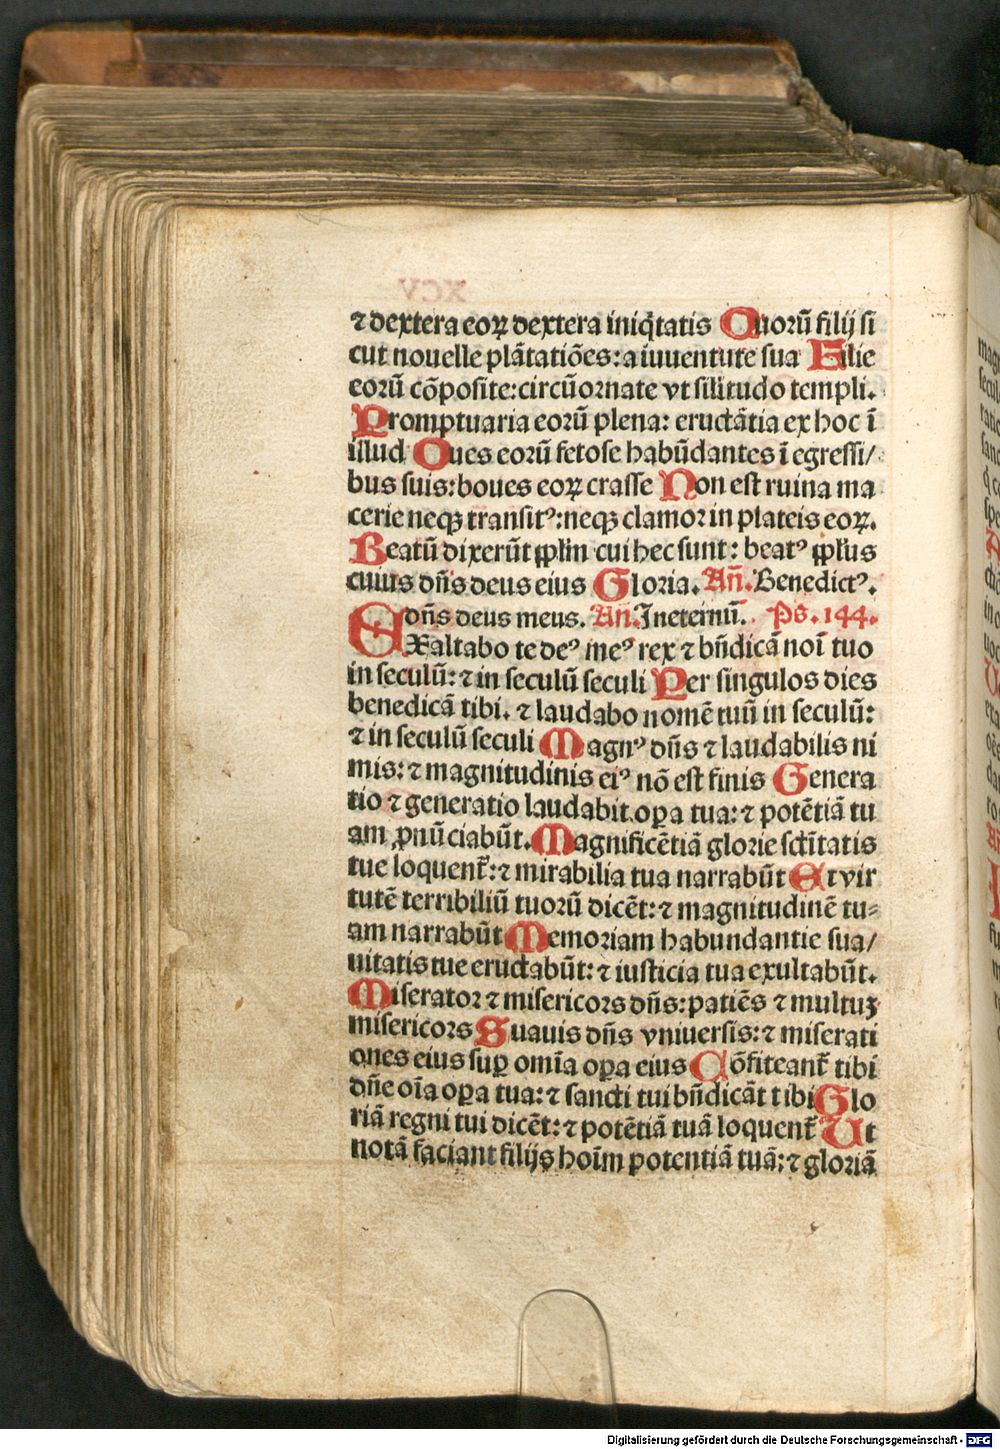 ⁊ dextera eoꝝ dextera iniq̃tatis Quorũ filij ſi
cut nouelle plãtatiões: a iuuentute ſua Filie
eorũ cõpoſite: circũornate vt ſilitudo templi.
Promptuaria eorũ plena: eructãtia ex hoc ĩ
illud Oues eorũ fetoſe habũdantes ĩ egreſſi/
bus ſuis: boues eoꝝ craſſe Non eſt ruina ma
cerie neqꝫ tranſitꝰ: neqꝫ clamoꝛ in plateis eoꝝ.
Beatũ dixerũt pplm̃ cui hec ſunt: beatꝰ ppl̃us
cuius dñs deus eius Gloꝛia. Añ. Benedictꝰ.
dñs deus meus. Añ. Ineternũ. Ps. 144.
EXaltabo te deꝰ meꝰ rex ⁊ bñdicã noĩ tuo
in ſeculũ: ⁊ in ſeculũ ſeculi Per ſingulos dies
benedicã tibi. ⁊ laudabo nomẽ tuũ in ſeculũ:
⁊ in ſeculũ ſeculi Magnꝰ dñs ⁊ laudabilis ni
mis: ⁊ magnitudinis eiꝰ nõ eſt finis Genera
tio ⁊ generatio laudabit oꝑa tua: ⁊ potẽtiã tu
am ꝓnũciabũt. Magnificẽtiã gloꝛie ſctĩtatis
tue loquent᷑: ⁊ mirabilia tua narrabũt Et vir
tutẽ terribiliũ tuoꝛũ dicẽt: ⁊ magnitudinẽ tu⸗
am narrabũt Memoꝛiam habundantie ſua/
uitatis tue eructabũt: ⁊ iuſticia tua exultabũt.
Miſeratoꝛ ⁊ miſericoꝛs dñs: patiẽs ⁊ multuʒ
miſericoꝛs Suauis dñs vniuerſis: ⁊ miſerati
ones eius ſuꝑ omĩa oꝑa eius Cõfiteant᷑ tibi
dñe oĩa oꝑa tua: ⁊ ſancti tui bñdicãt tibi Glo
riã regni tui dicẽt: ⁊ potẽtiã tuã loquent᷑ Ut
notã faciant filijs hoĩm potentiã tuã: ⁊ gloꝛiã
Digitalisierung gefördert durch die Deutsche Forschungsgemeinschaft - DFG